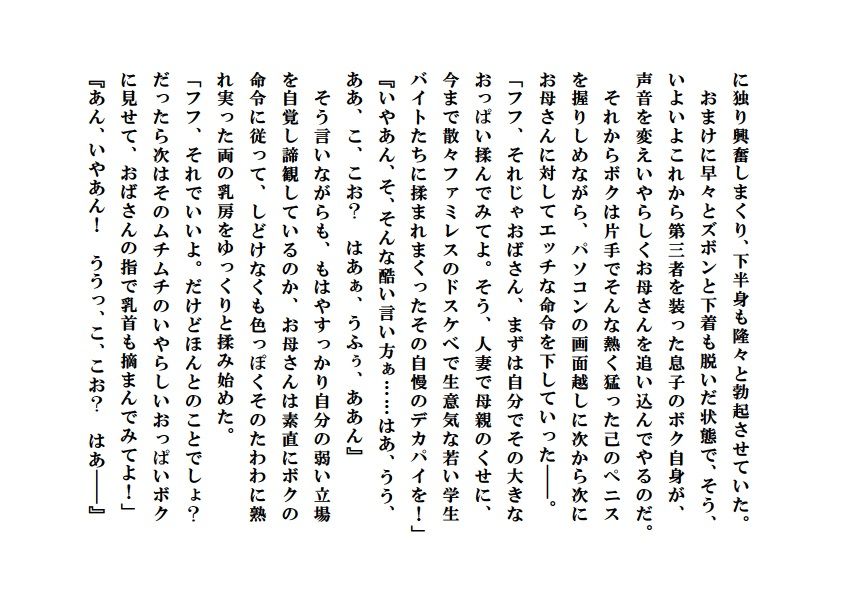 に独り興奮しまくり、下半身も隆々と勃起させていた。
　おまけに早々とズボンと下着も脱いだ状態で、そう、
いよいよこれから第三者を装った息子のボク自身が、
声音を変えいやらしくお母さんを追い込んでやるのだ。
　それからボクは片手でそんな熱く猛った己のペニス
を握りしめながら、パソコンの画面越しに次から次に
お母さんに対してエッチな命令を下していった――。
「フフ、それじゃおばさん、まずは自分でその大きな
おっぱい揉んでみてよ。そう、人妻で母親のくせに、
今まで散々ファミレスのドスケベで生意気な若い学生
バイトたちに揉まれまくったその自慢のデカパイを！」
『いやあん、そ、そんな酷い言い方ぁ……はあ、うう、
ああ、こ、こお？　はあぁ、うふぅ、ああん』
　そう言いながらも、もはやすっかり自分の弱い立場
を自覚し諦観しているのか、お母さんは素直にボクの
命令に従って、しどけなくも色っぽくそのたわわに熟
れ実った両の乳房をゆっくりと揉み始めた。
「フフ、それでいいよ。だけどほんとのことでしょ？
だったら次はそのムチムチのいやらしいおっぱいボク
に見せて、おばさんの指で乳首も摘まんでみてよ！」
『あん、いやあん！　ううっ、こ、こお？　はあ――』